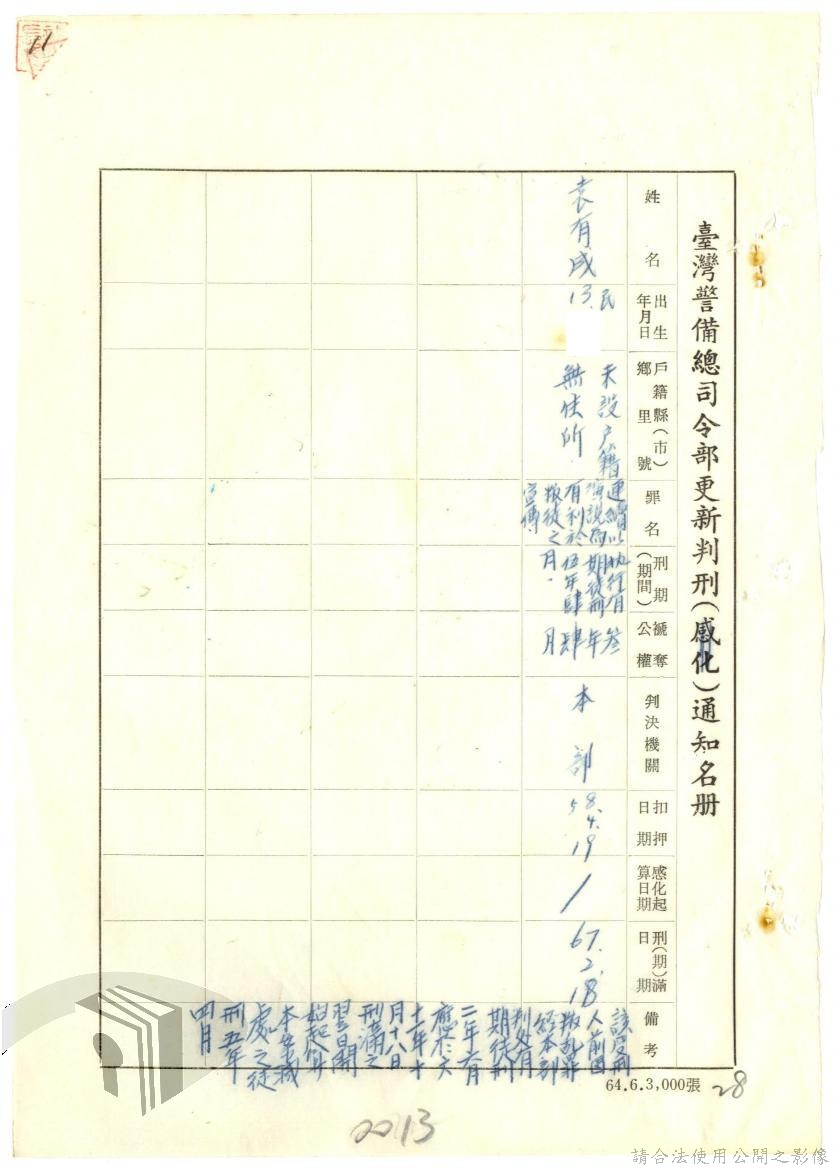 11
臺灣警備總司令部更新判刑(感化)通知名册
姓名
出生年月日
戶籍縣(市)鄉里號
罪名
刑期(期間)
褫奪公權
判決機關
扣押日期
感化起算日期
刑(期)滿日期
備考
袁有成
民13.
未設戶籍
無住所
連續以
演說為
有利於
叛徒之
宣傳.
執行有
期徒刑
伍年肆
月.
叁年肆月
本部
58.4.19
/
67.2.18
該受刑
人前因
叛亂罪
經本部
判處有
期徒刑
二年六月
應於六
十一年十
月十八日
刑滿之
翌日開
始起算
本案判
處之徒
刑五年
四月
64.6.3,000張
28
0013
請合法使用公開之影像